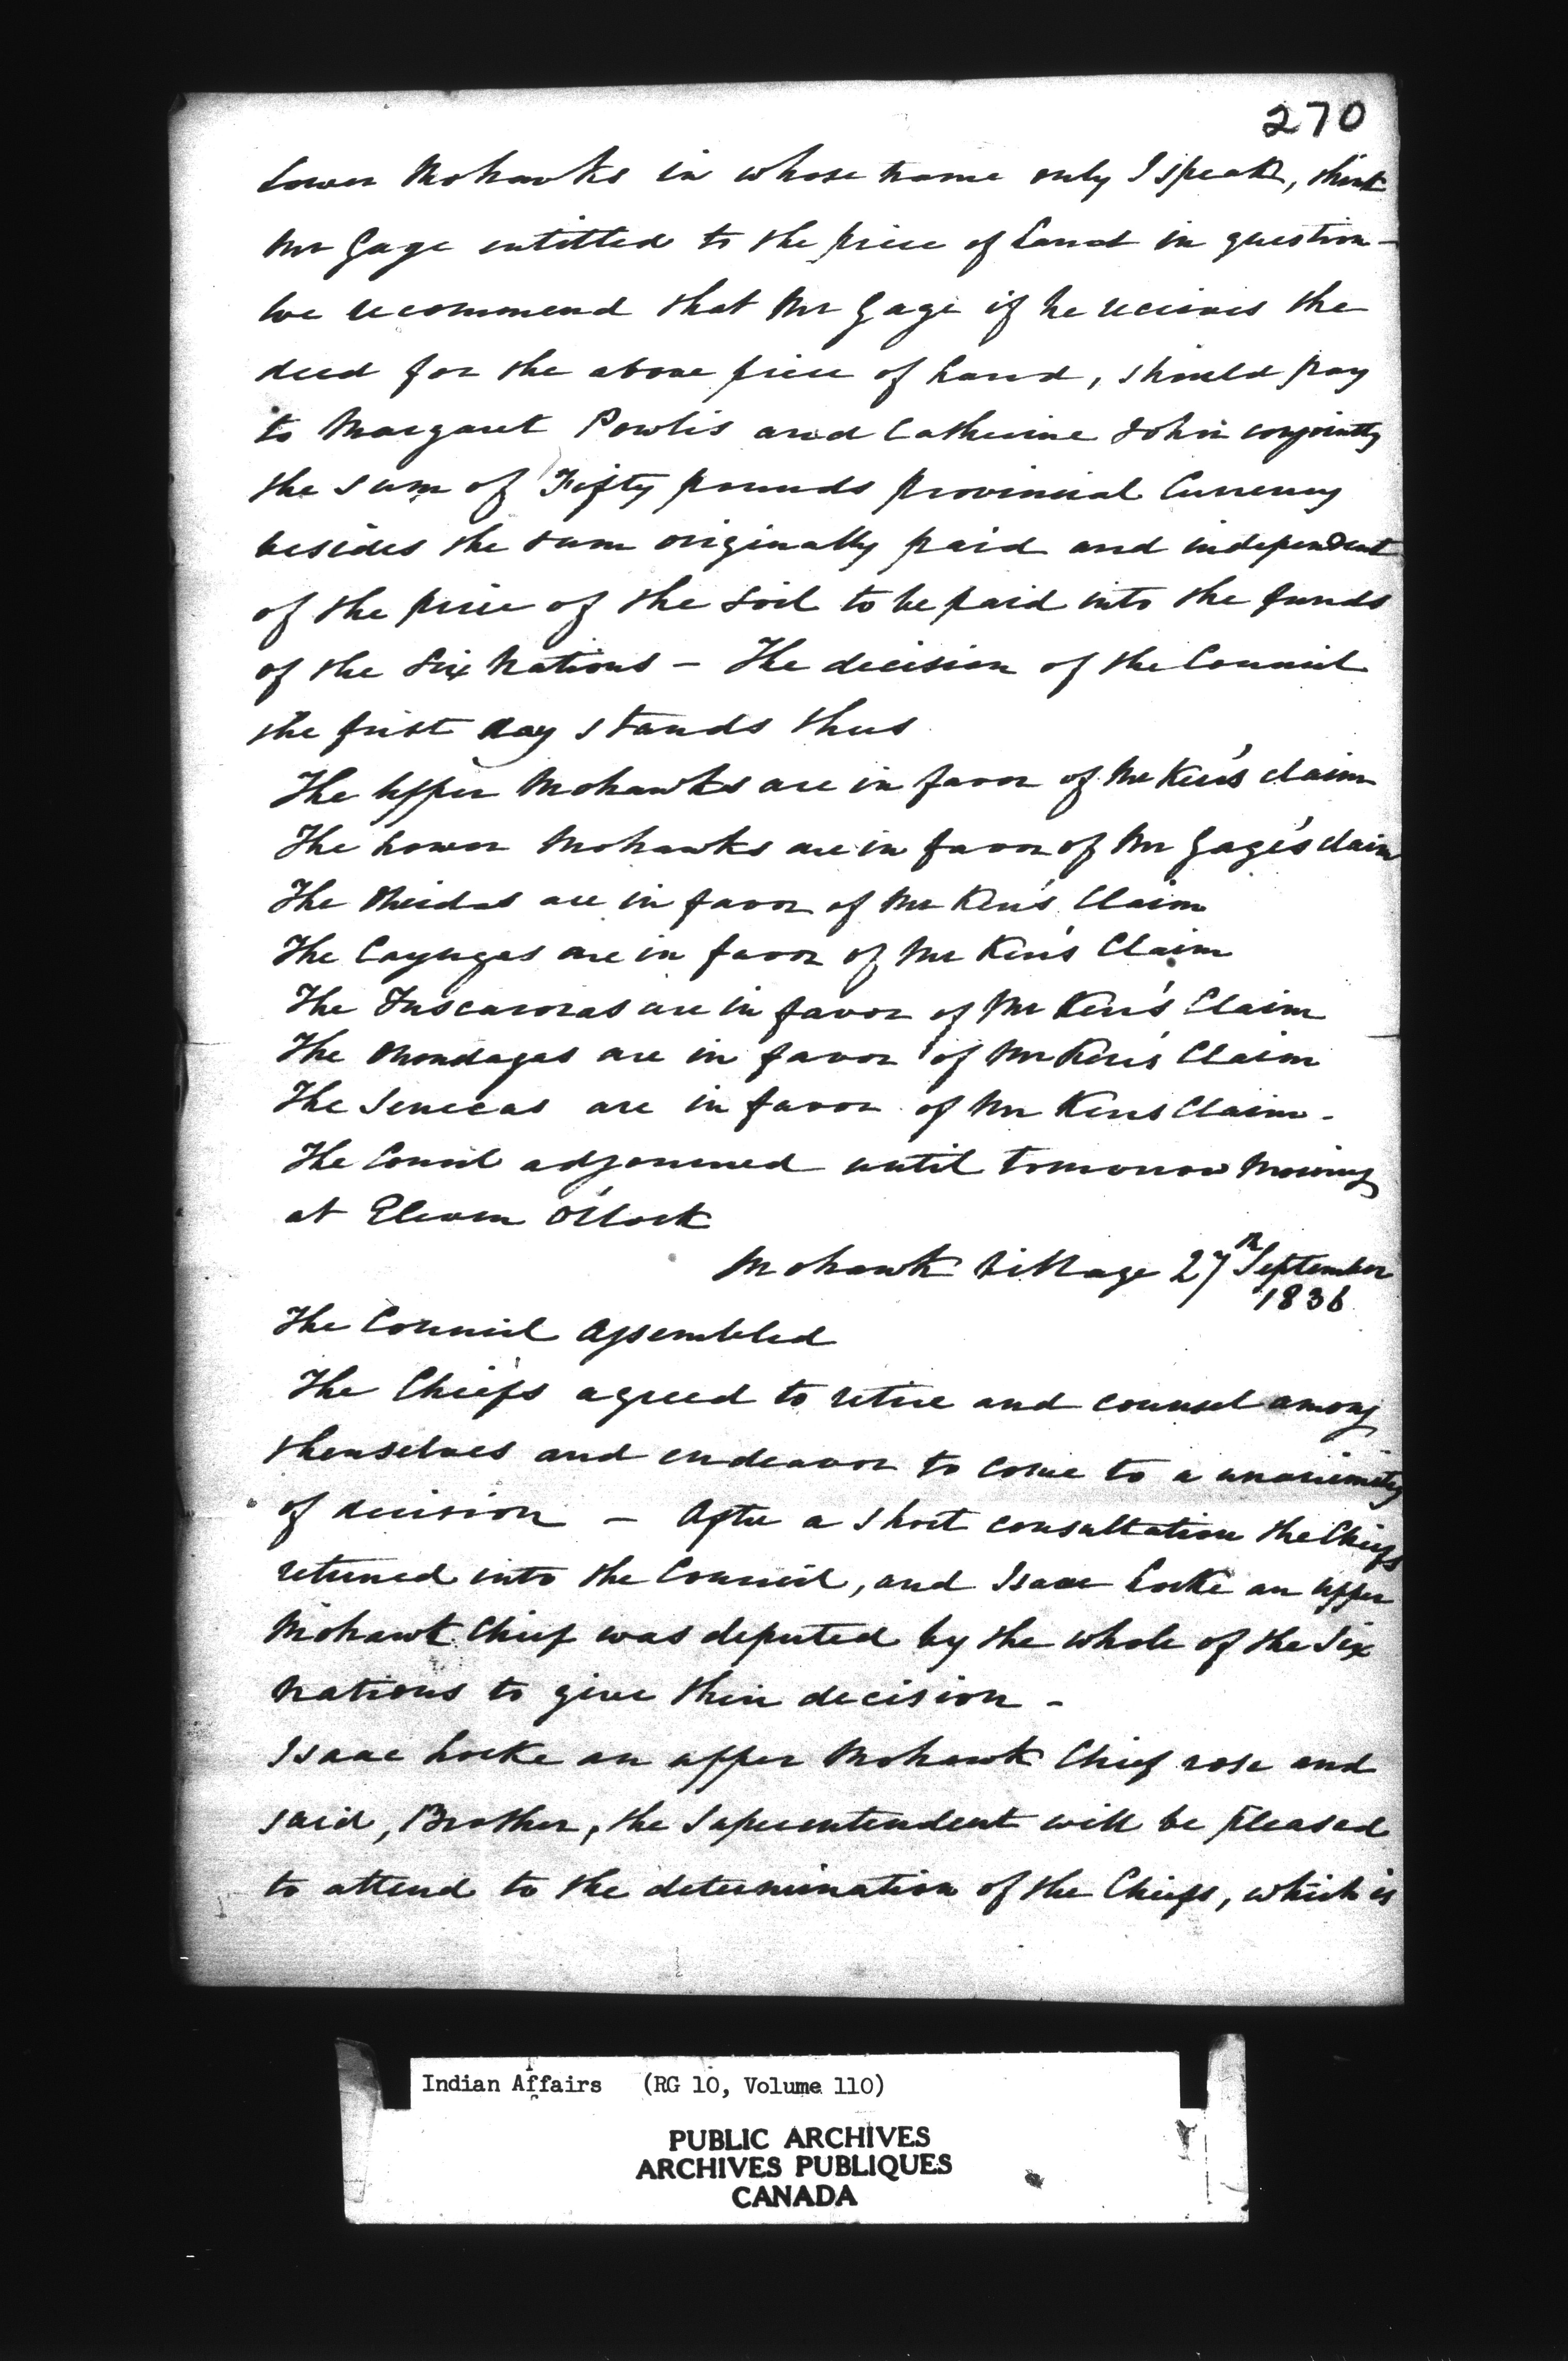 270
Lower Mohawks in whose name only I speak, think
Mr Gage entitled to the piece of Land in question -
We recommend that Mr Gage if he receives the
deed for the above piece of Land, should pay
to Margaret Powlis and Catherine John conjointly
the sum of Fifty pounds provincial Currency
besides the sum originally paid and independent
of the price of the Soil to be paid into the funds
of the Six Nations - The decision of the Council
the first day stands thus
The Upper Mohawks are in favor of Mr Kerr's claim
The Lower Mohawks are in favor of Mr Gage's claim
The Oneidas are in favor of Mr Kerr's Claim
The Cayugas are in favor of Mr Kerr's Claim
The Tuscaroras are in favor of Mr Kerr's Claim
The Onondagas are in favor of Mr Kerr's Claim
The Senecas are in favor of Mr Kerrs Claim -
The Council adjourned until tomorrow Morning
at Eleven O'Clock
Mohawk Village 27th September
1836
The Council Assembled
The Chiefs agreed to retire and counsel among
themselves and endeavor to come to a unanimity
of decision - After a short consultation the Chiefs
returned into the Council, and Isaac Locke an Upper
Mohawk Chief was deputed by the whole of the Six
Nations to give their decision -
Isaac Locke an upper Mohawk Chief rose and
said, Brother, the Superentendent will be pleased
to attend to the determination of the Chiefs, which is
Indian Affairs (RG 10, Volume 110)
PUBLIC ARCHIVES
ARCHIVES PUBLIQUES
CANADA